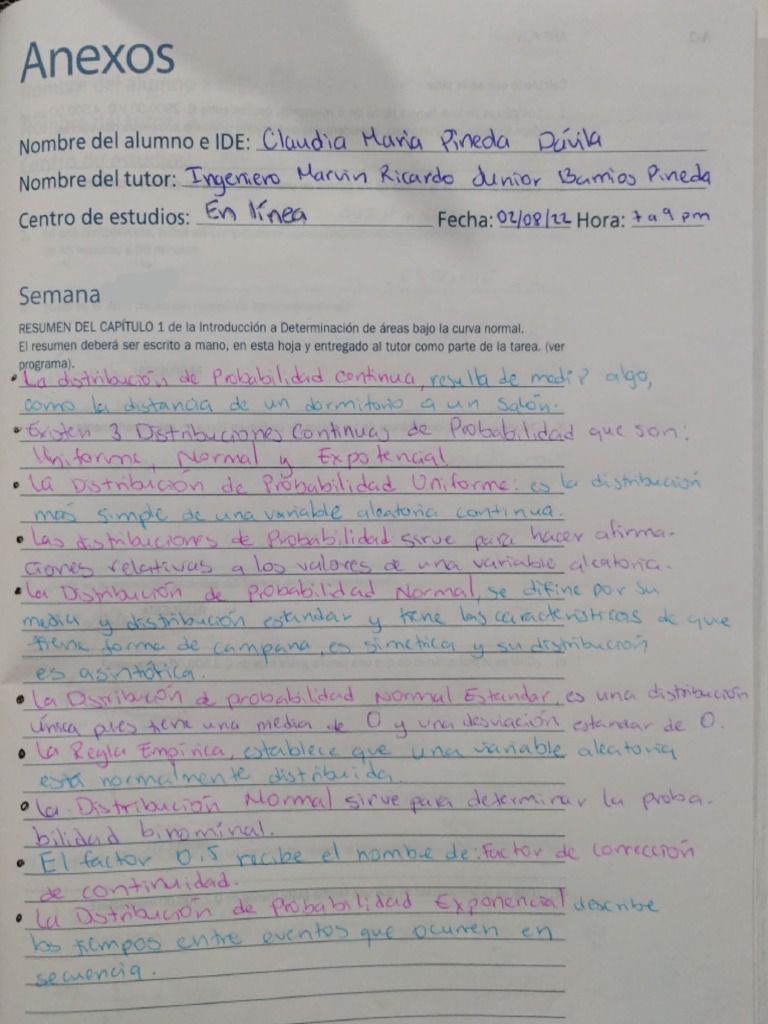 Anexos
Nombre del alumno e IDE: Claudia Maria Pineda Dávila
Nombre del tutor: Ingeniero Marvin Ricardo Junior Barrios Pineda
Centro de estudios: En línea Fecha: 02/08/22 Hora: 7 a 9 pm
Semana
RESUMEN DEL CAPÍTULO 1 de la Introducción a Determinación de áreas bajo la curva normal.
El resumen deberá ser escrito a mano, en esta hoja y entregado al tutor como parte de la tarea. (ver
programa).
• La distribución de Probabilidad Continua, resulta de medir algo,
como la distancia de un dormitorio a un salón.
• Existen 3 Distribuciones Continuas de Probabilidad que son:
Uniforme, Normal y Expotencial
• La Distribución de Probabilidad Uniforme: es la distribución
mas simple de una variable aleatoria continua.
• Las distribuciones de Probabilidad sirve para hacer afirma-
ciones relativas a los valores de una variable aleatoria.
• La Distribución de Probabilidad Normal, se difine por su
media y distribución estandar y tiene las caracteristicas de que
tiene forma de campana, es simetrica y su distribución
es asintótica.
• La Distribución d probabilidad Normal Estandar, es una distribución
única pues tiene una media de 0 y una desviación estandar de 0.
• La Regla Empírica, establece que una variable aleatoria
está normalmente distribuida.
• La Distribución Normal sirve para determinar la proba-
bilidad binominal.
• El factor 0.5 recibe el nombre de: Factor de corrección
de continuidad.
• La Distribución de Probabilidad Exponencial describe
los tiempos entre eventos que ocurren en
secuencia.